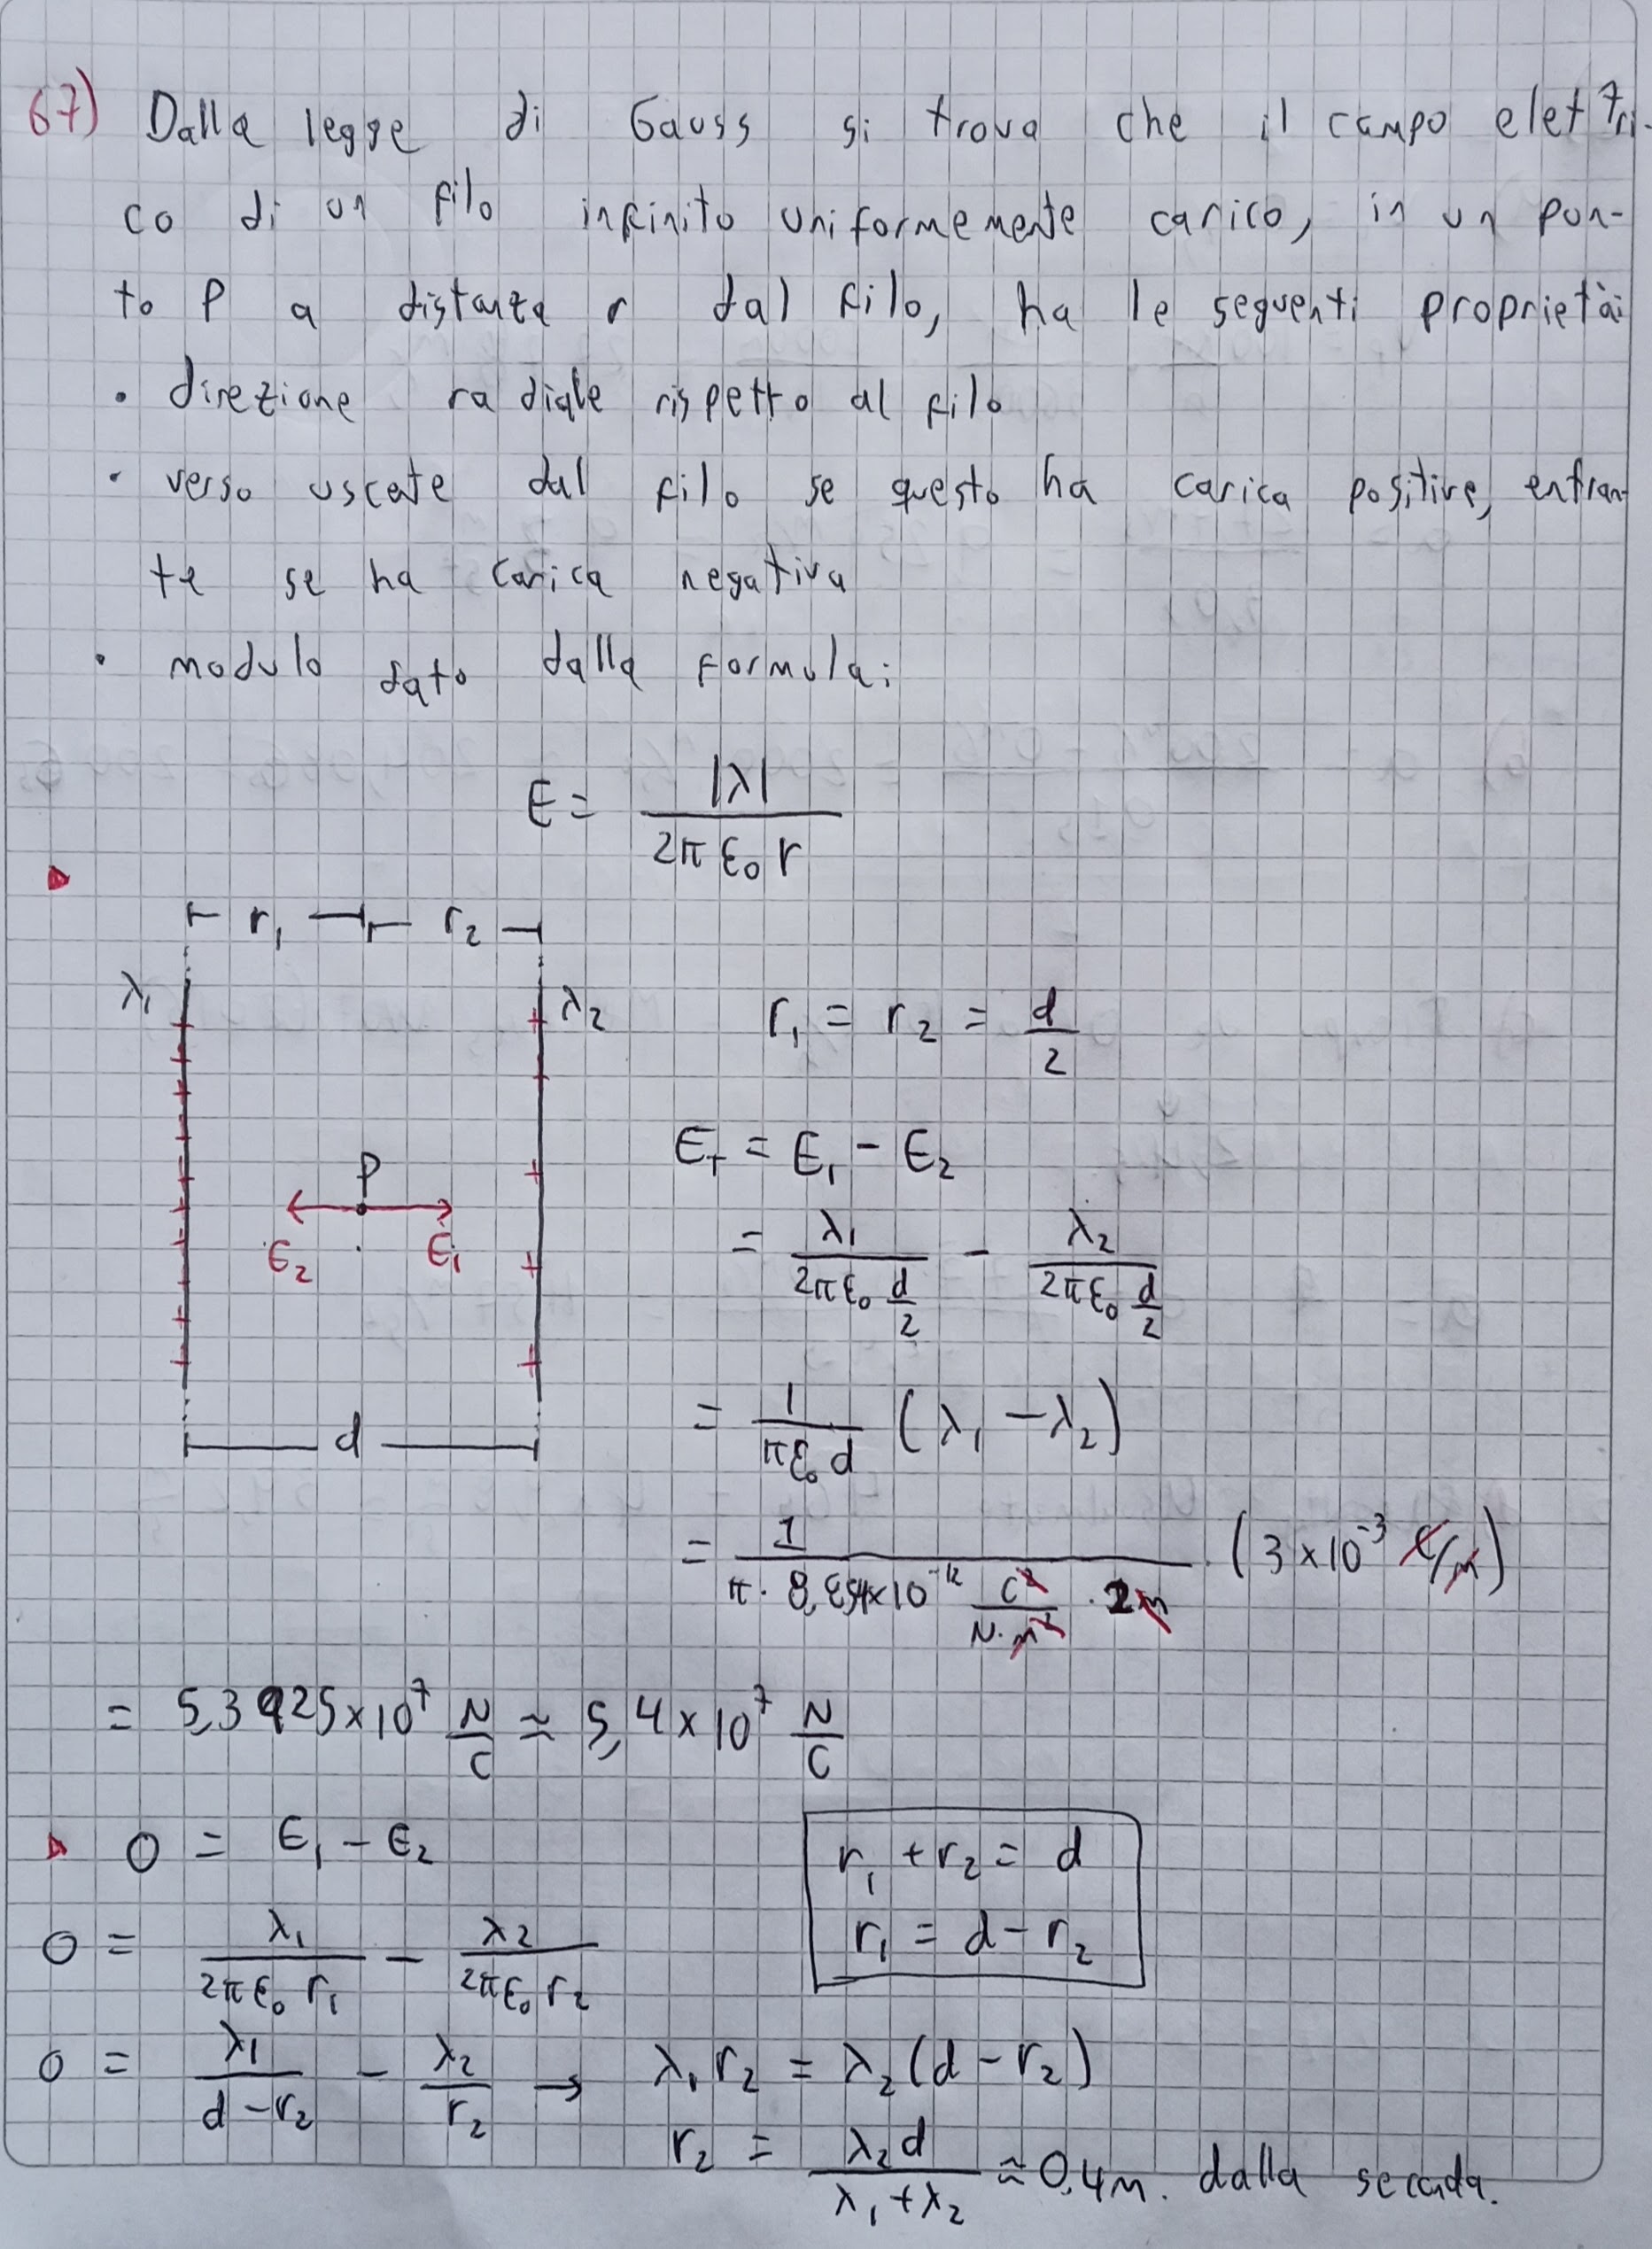 67) Dalla legge di Gauss si trova che il campo elettri-
co di un filo infinito uniformemente carico, in un pun-
to P a distanza r dal filo, ha le seguenti proprietà:
• direzione radiale rispetto al filo
• verso uscente dal filo se questo ha carica positiva, entran-
te se ha carica negativa
• modulo dato dalla formula:
E = |λ| / (2π ε₀ r)
r₁ r₂
λ₁ λ₂
r₁ = r₂ = d/2
P
E₂ E₁
d
E_T = E₁ - E₂
= λ₁ / (2πε₀ d/2) - λ₂ / (2πε₀ d/2)
= 1 / (πε₀ d) (λ₁ - λ₂)
= 1 / (π · 8,854×10⁻¹² C²/(N·m²) · 2m) · (3×10⁻³ C/m)
= 5,3925×10⁷ N/C ≃ 5,4×10⁷ N/C
0 = E₁ - E₂
r₁ + r₂ = d
r₁ = d - r₂
0 = λ₁ / (2πε₀ r₁) - λ₂ / (2πε₀ r₂)
0 = λ₁ / (d - r₂) - λ₂ / r₂ → λ₁ r₂ = λ₂ (d - r₂)
r₂ = λ₂ d / (λ₁ + λ₂) ≈ 0,4m. dalla seconda.